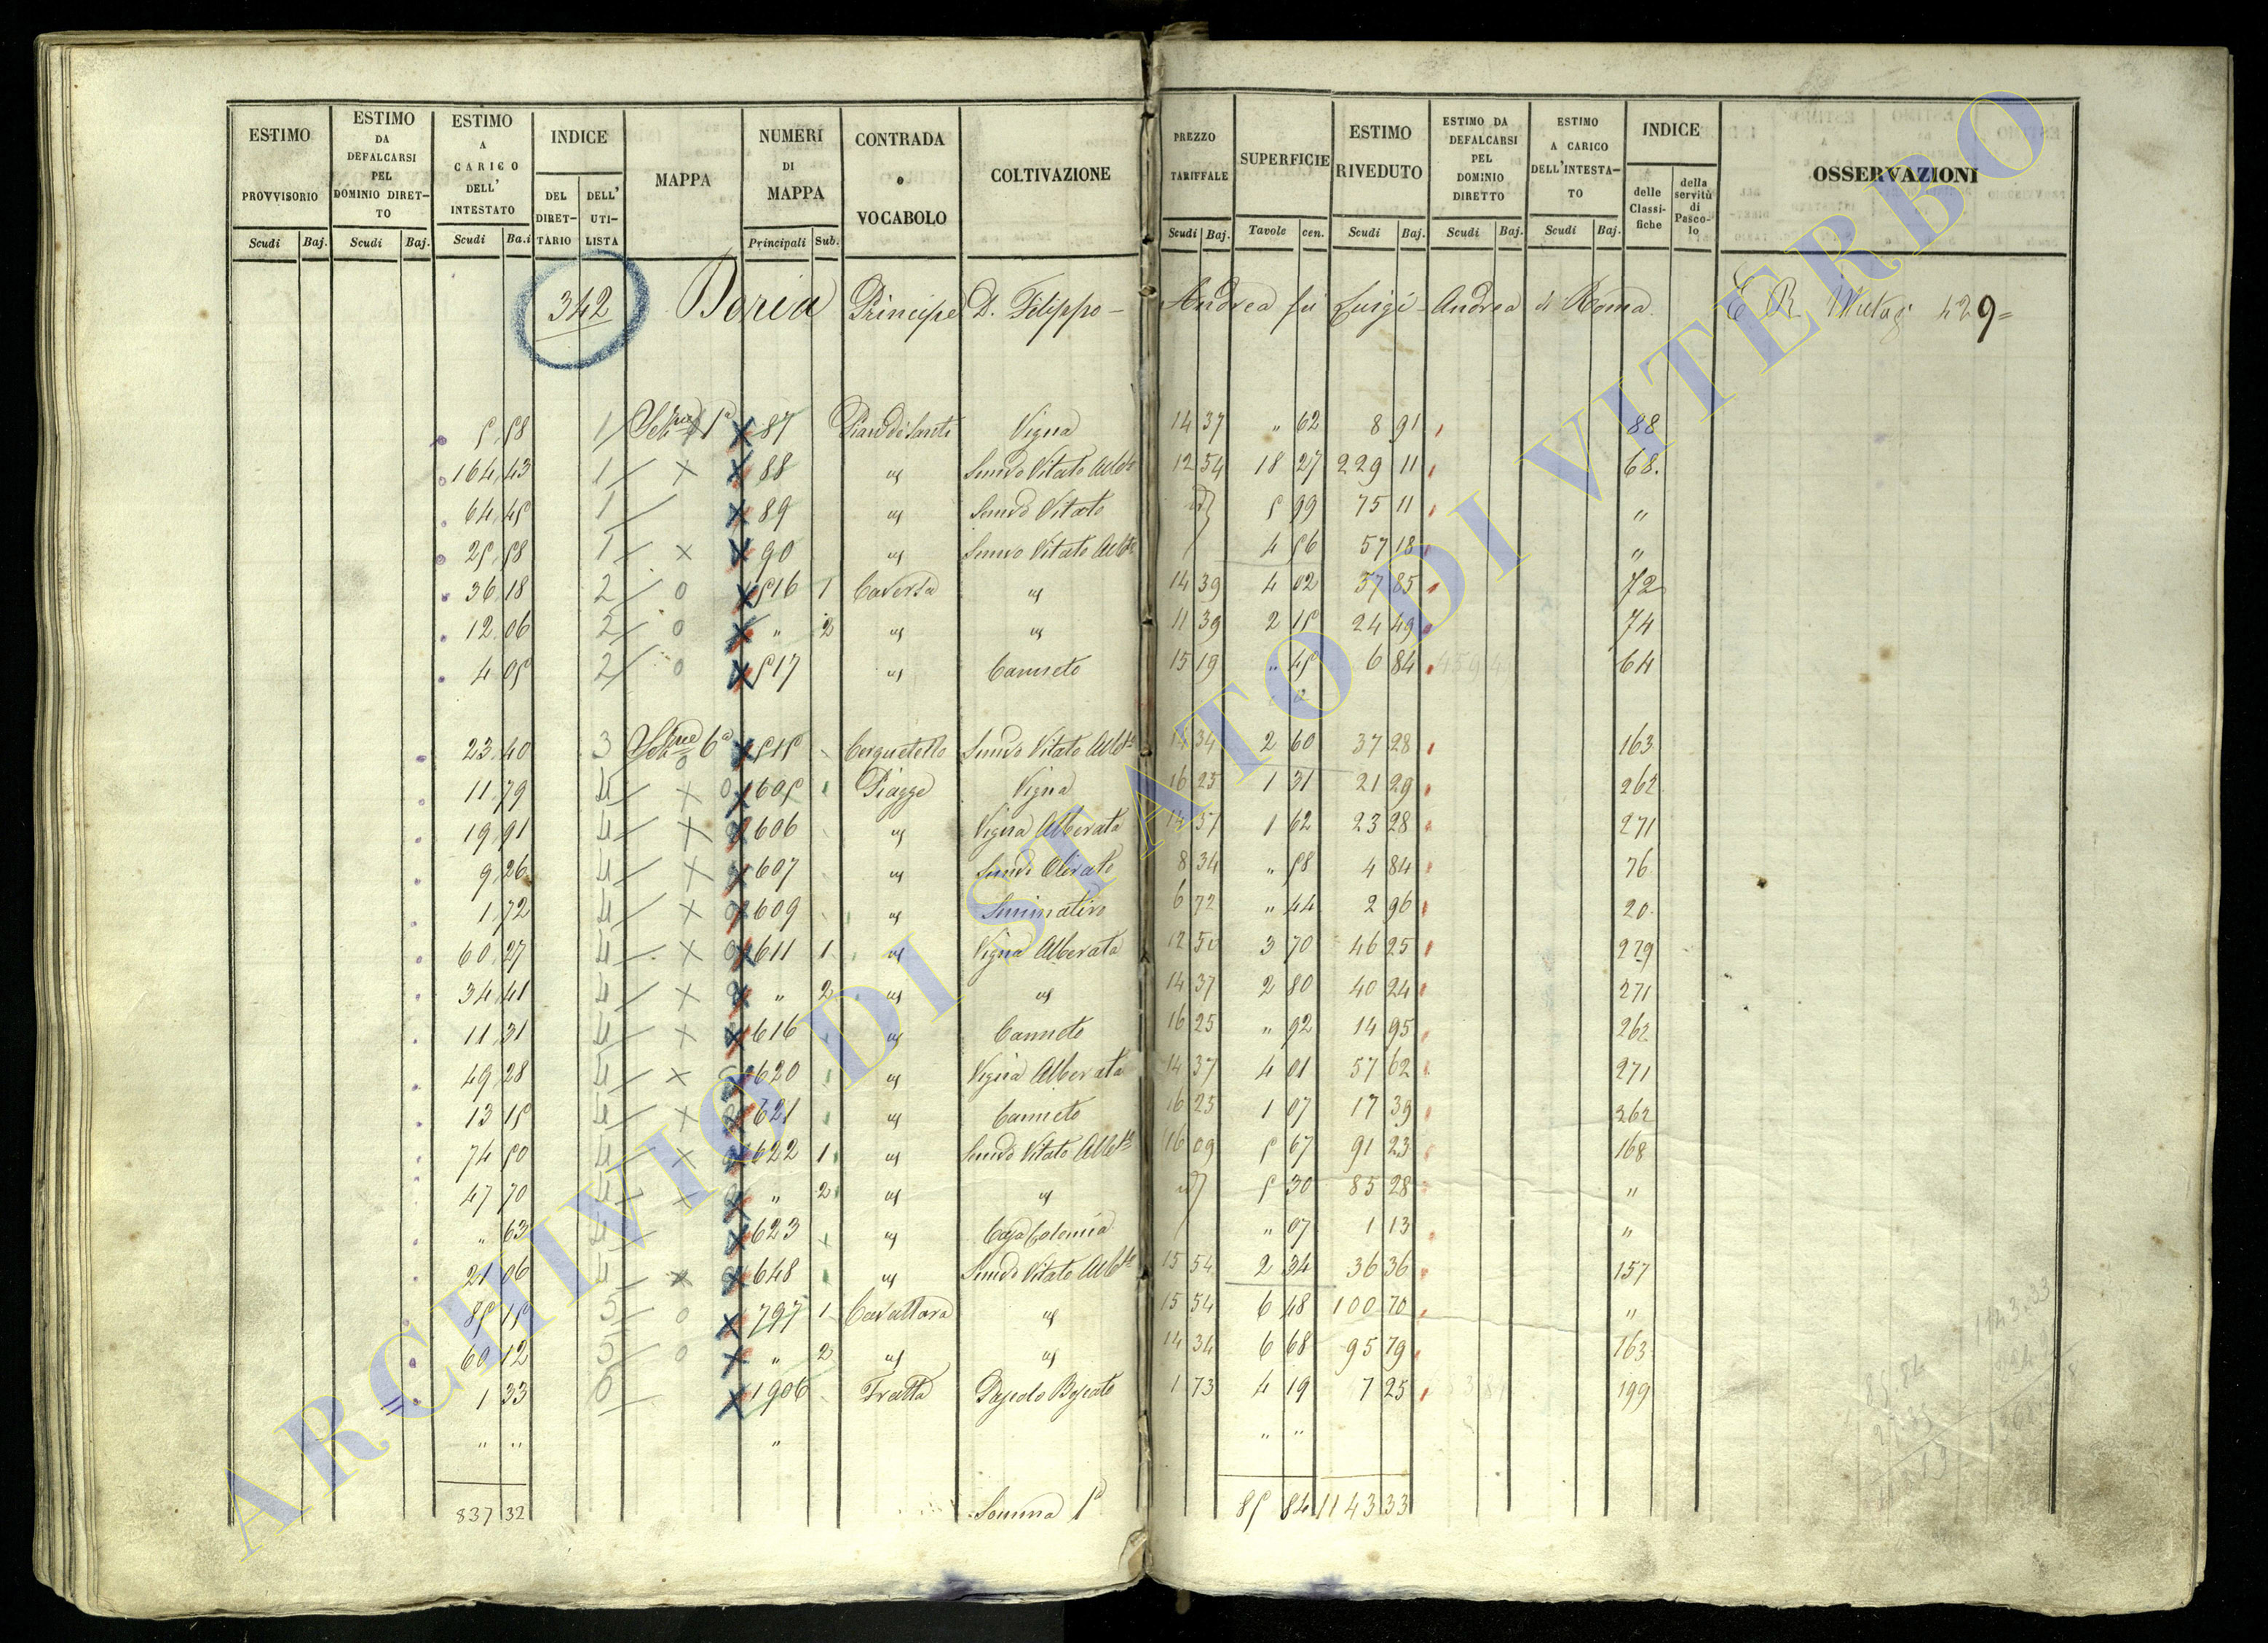 ESTIMO PROVVISORIO
ESTIMO DA DEFALCARSI PEL DOMINIO DIRET-TO
ESTIMO A CARICO DELL' INTESTATO
INDICE
DEL DIRET-TARIO
DELL' UTI-LISTA
MAPPA
NUMERI DI MAPPA
CONTRADA o VOCABOLO
COLTIVAZIONE
PREZZO TARIFFALE
SUPERFICIE
ESTIMO RIVEDUTO
ESTIMO DA DEFALCARSI PEL DOMINIO DIRETTO
ESTIMO A CARICO DELL'INTESTA-TO
INDICE
delle Classi-fiche
della servitù di Pasco-lo
OSSERVAZIONI
Scudi Baj. Scudi Baj. Scudi Ba.i Principali Sub. Scudi Baj. Tavole cen. Scudi Baj. Scudi Baj. Scudi Baj.
342 Doria Principe D. Filippo - Andrea fu Luigi-Andrea di Roma. 429=
5 58 1 87 Vigna 14 37 " 62 8 91 88
164 43 1 88 " Semvo Vitato Albto 12 54 18 27 229 11 68
64 45 1 89 " Semvo Vitato 5 99 75 11 "
25 58 1 90 " Semvo Vitato Albto 4 56 57 18 "
36 18 2 516 1 Caversa " 14 39 4 02 57 85 72
12 06 2 " 2 " " 11 39 2 15 24 49 74
4 05 2 517 " Canneto 15 19 " 45 6 84 64
23 40 3 Sezne 6a 515 Cerquetello Semvo Vitato Albto 14 34 2 60 37 28 163
11 79 4 605 Piagge Vigna 16 25 1 31 21 29 262
19 91 4 606 " Vigna Alberata 14 37 1 62 23 28 271
9 26 4 607 " Semvo Olivato 8 34 " 58 4 84 76
1 72 4 609 " Seminativo 6 72 " 44 2 96 20
60 27 4 611 1 " Vigna Alberata 12 50 3 70 46 25 279
34 41 4 " 2 " " 14 37 2 80 40 24 271
11 31 4 616 " Canneto 16 25 " 92 14 95 262
49 28 4 620 " Vigna Alberata 14 37 4 01 57 62 271
13 15 4 621 " Canneto 16 25 1 07 17 39 262
74 50 4 622 1 " Semvo Vitato Albto 16 09 5 67 91 23 168
47 70 4 " 2 " " 5 30 85 28 "
" 63 4 623 " Casa Colonica " 07 1 13 "
21 06 4 648 " Semvo Vitato Albto 15 54 2 34 36 36 157
85 15 5 797 1 Cavattora " 15 54 6 48 100 70 "
60 12 5 " 2 " " 14 34 6 68 95 79 163
1 33 1906 Fratta Pascolo Boscato 1 73 4 19 7 25 199
" " " " "
837 32 Somma 1a 85 84 1143 33
1143.33
85.84
ARCHIVIO DI STATO DI VITERBO